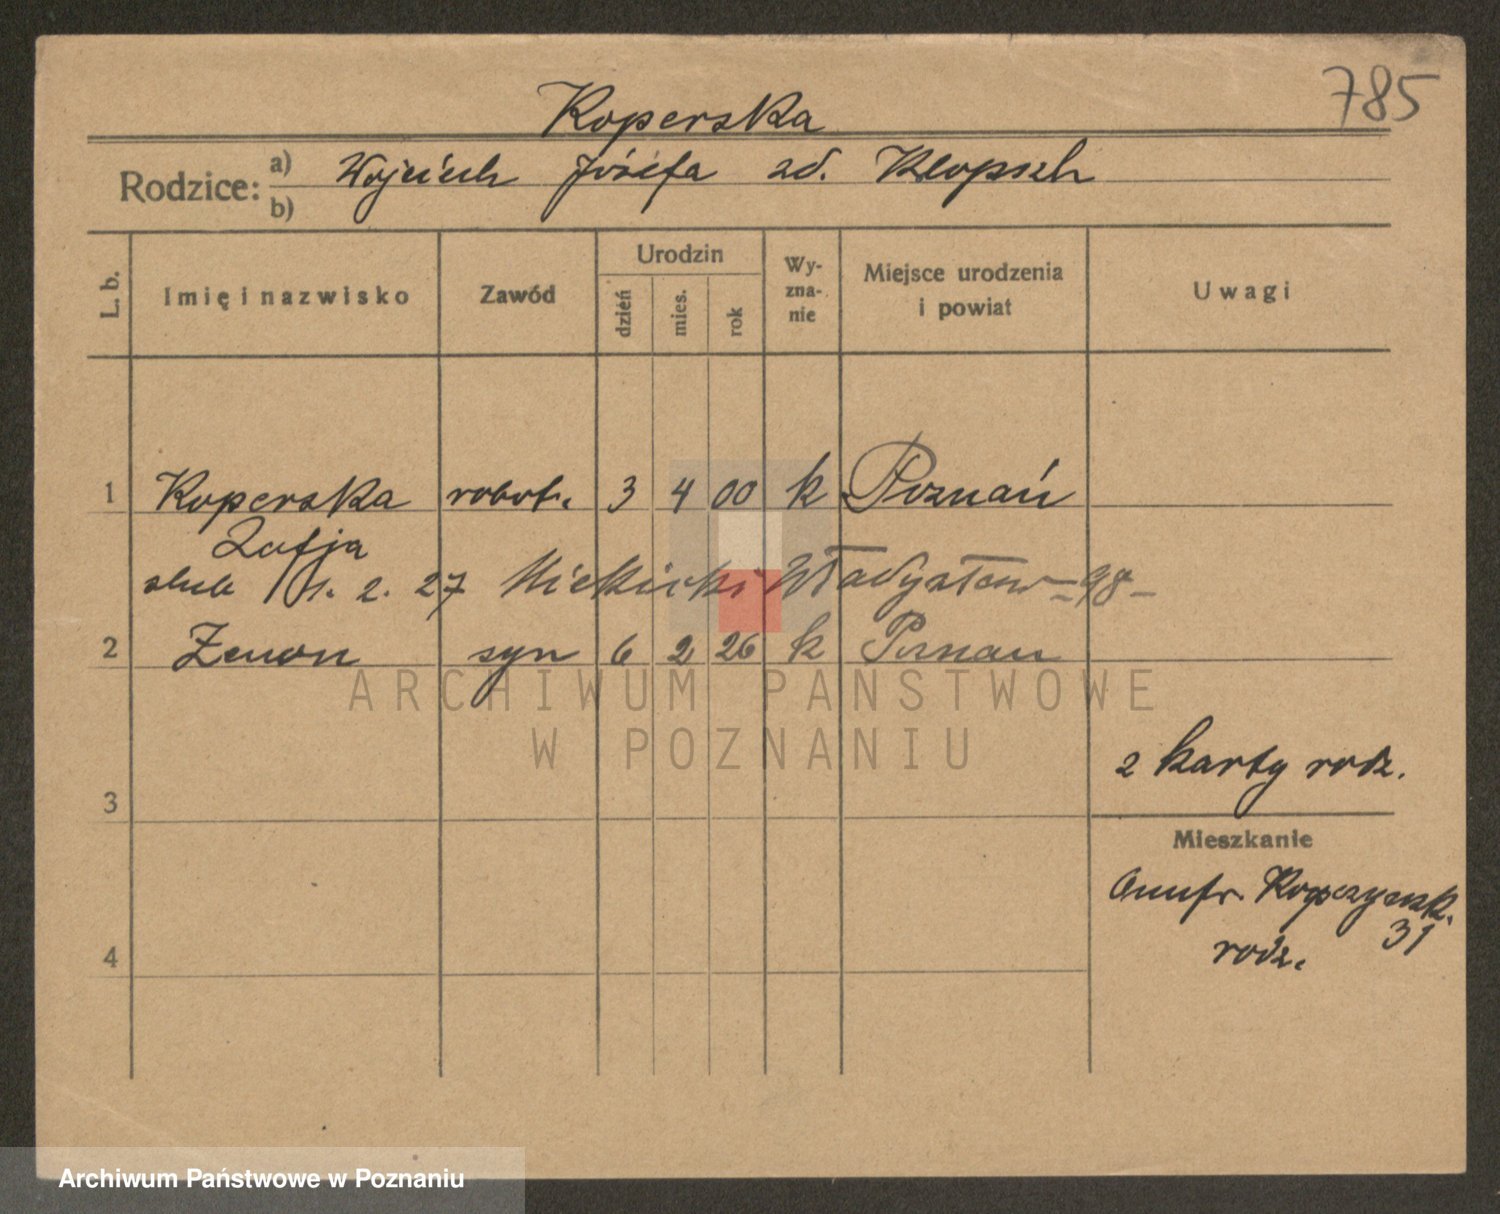 785
Koperska
Rodzice: a) Wojciech Józefa zd. Klopsch
b)
L. b. Imię i nazwisko Zawód Urodzin dzień mies. rok Wyzna-nie Miejsce urodzenia i powiat Uwagi
1 Koperska robotn. 3 4 00 k Poznań
Zofja
ślub 1. 2. 27 Władysław 98
2 Zenon syn 6 2 26 k Poznań
ARCHIWUM PAŃSTWOWE
W POZNANIU
2 karty rodz.
3
Mieszkanie
Onufr. Kopczyńsk.
31
rodz.
4
Archiwum Państwowe w Poznaniu